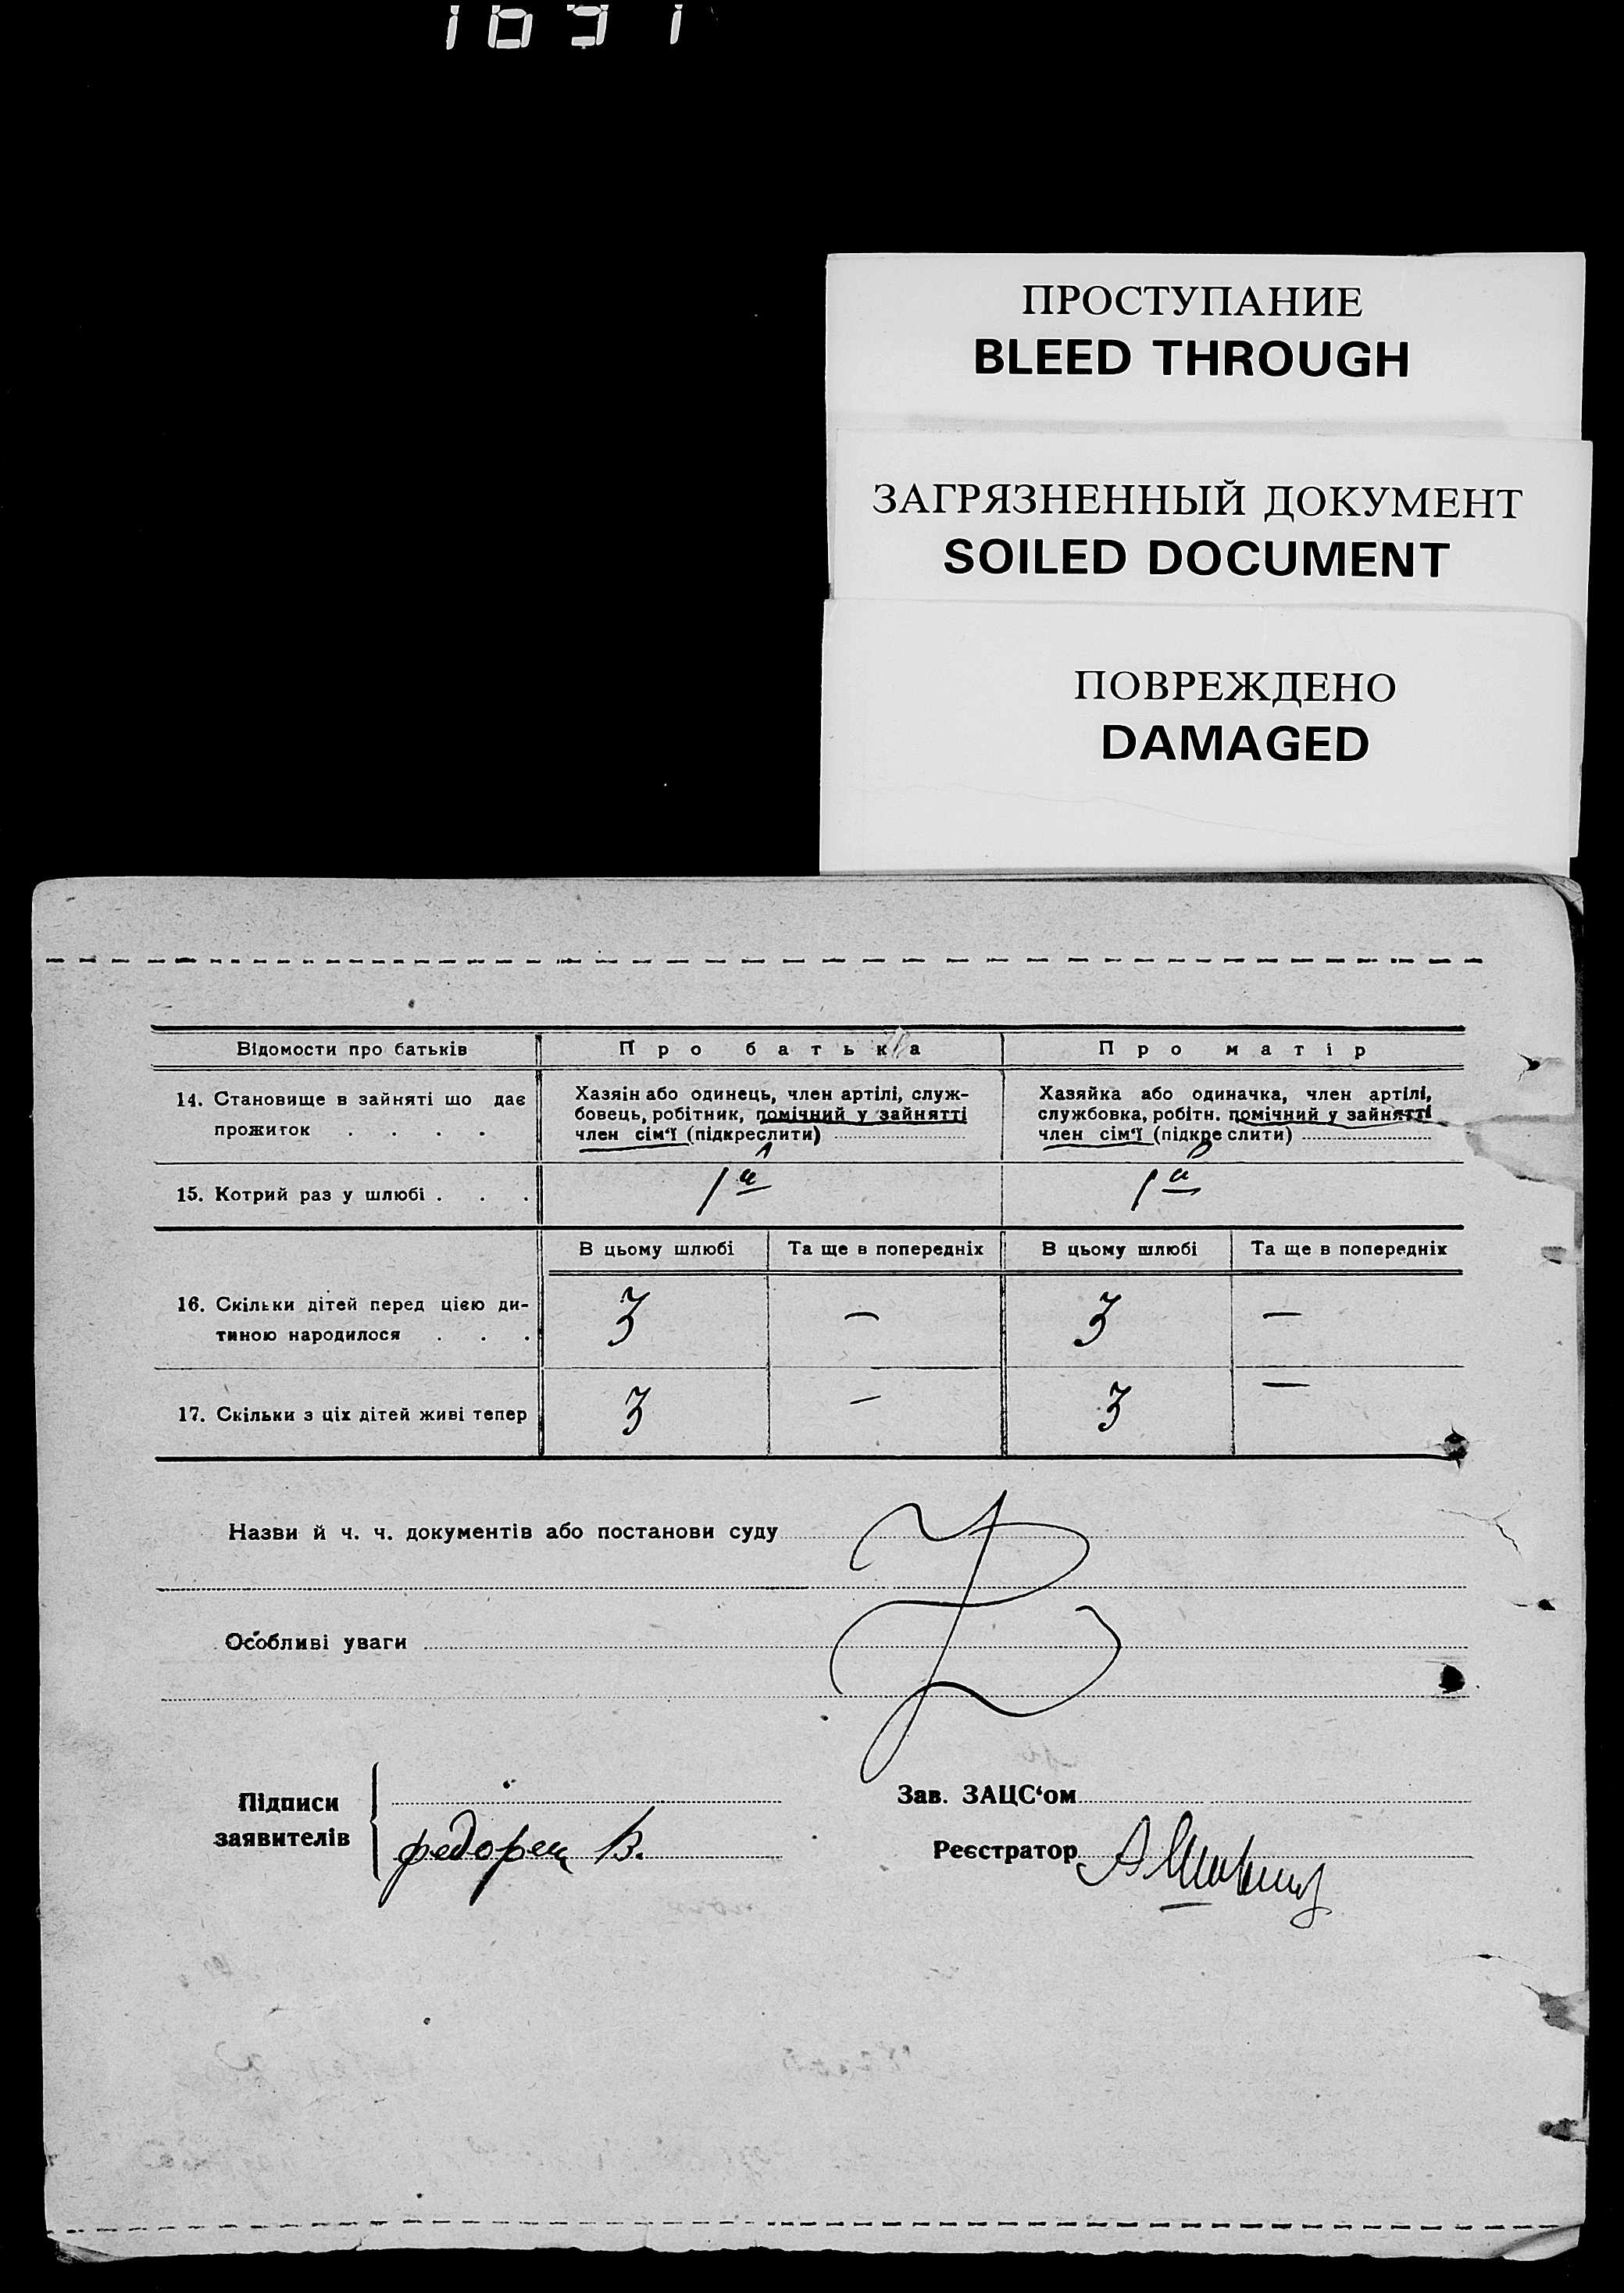 ПРОСТУПАНИЕ
BLEED THROUGH
ЗАГРЯЗНЕННЫЙ ДОКУМЕНТ
SOILED DOCUMENT
ПОВРЕЖДЕНО
DAMAGED
Відомости про батьків Про батька Про матір
14. Становище в зайняті що дає
прожиток . . . .
Хазяїн або одинець, член артілі, служ-
бовець, робітник, помічний у зайнятті
член сім‘ї (підкреслити)
Хазяйка або одиначка, член артілі,
службовка, робітн. помічний у зайнятті
член сім‘ї (підкреслити)
15. Котрий раз у шлюбі . . . 1й 1й
В цьому шлюбі Та ще в попередніх В цьому шлюбі Та ще в попередніх
16. Скільки дітей перед цією ди-
тиною народилося . . . 3 — 3 —
17. Скільки з ціх дітей живі тепер 3 — 3 —
Назви й ч. ч. документів або постанови суду
Особливі уваги
Підписи
заявителів
Федорец В.
Зав. ЗАЦС‘ом
Реєстратор